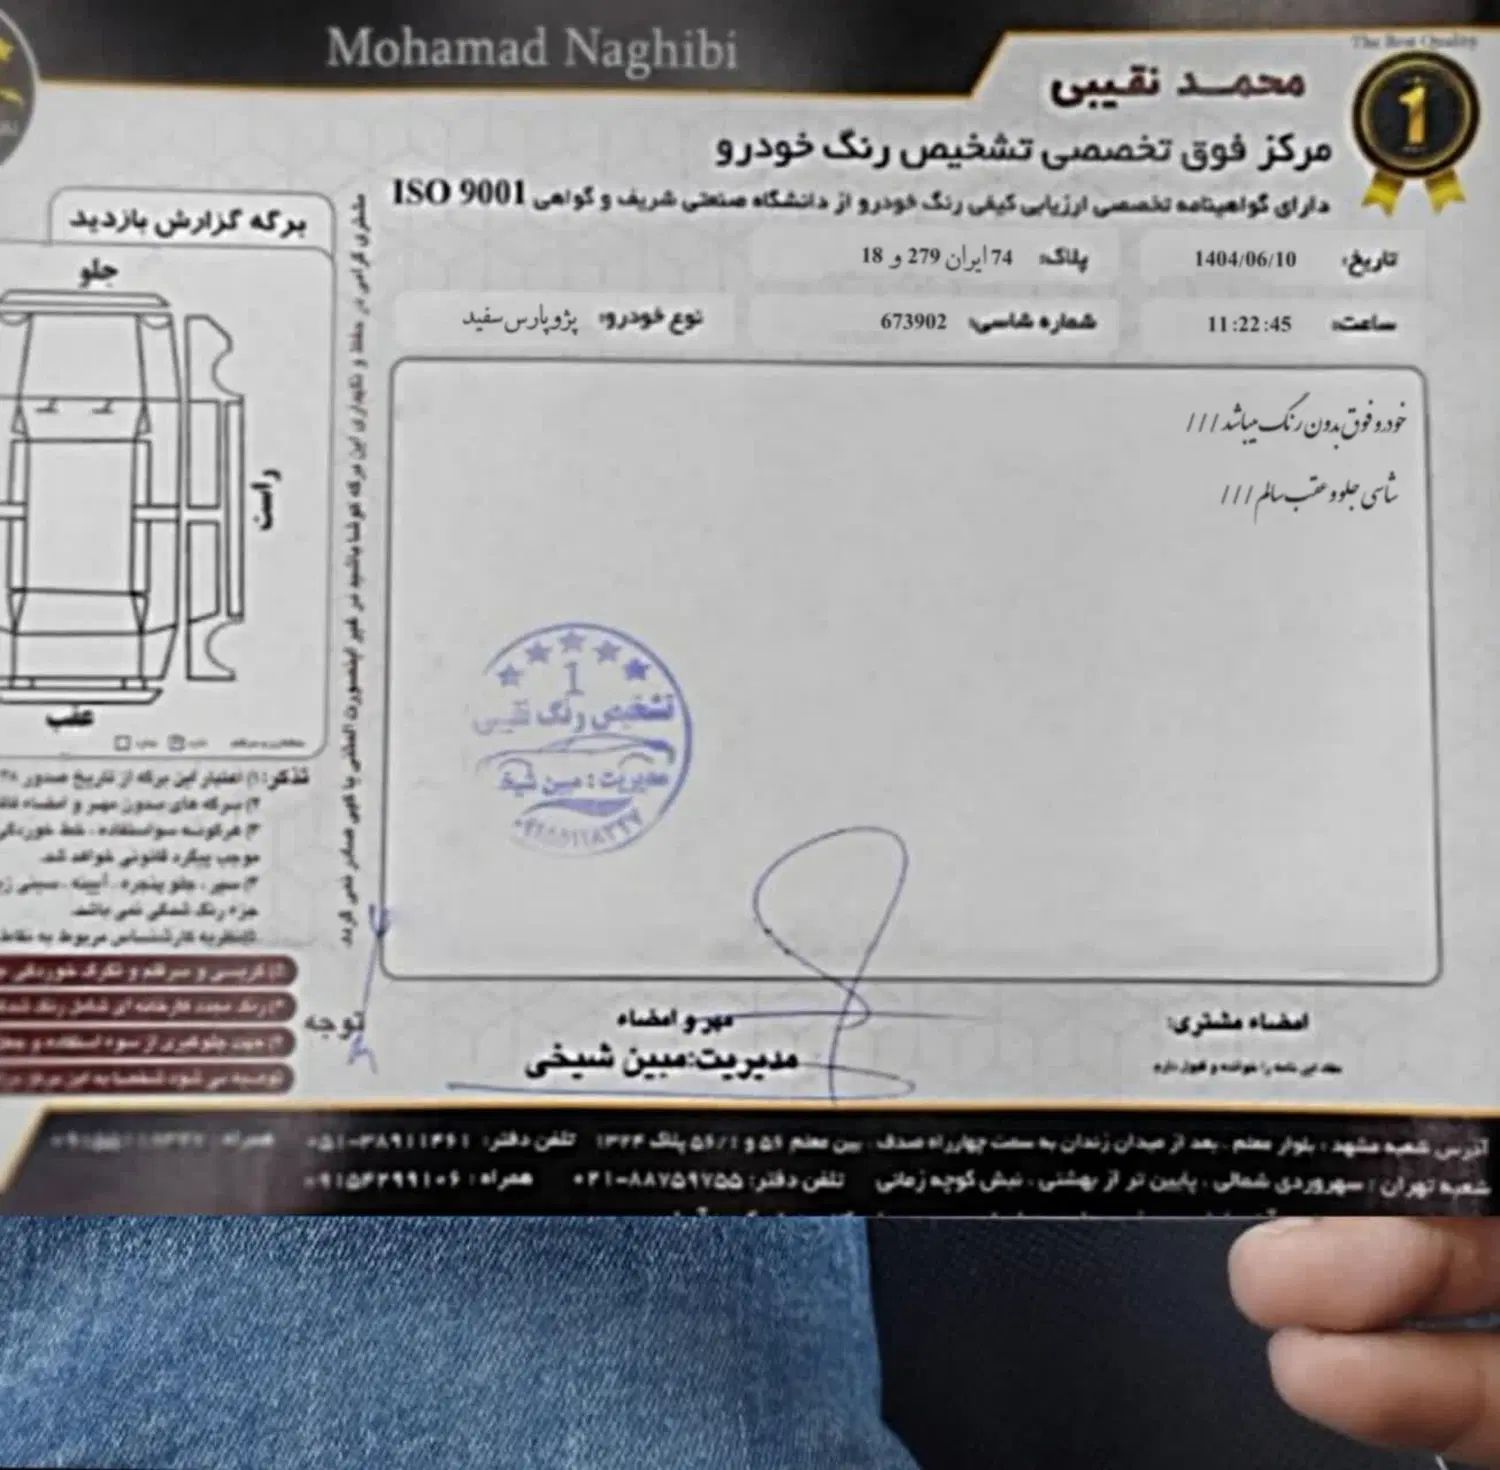 Mohamad Naghibi
The Best Quality
1
محمد نقیبی
مرکز فوق تخصصی تشخیص رنگ خودرو
دارای گواهینامه تخصصی ارزیابی کیفی رنگ خودرو از دانشگاه صنعتی شریف و گواهی ISO 9001
تاریخ: 1404/06/10
پلاک: 74 ایران 279 و 18
ساعت: 11:22:45
شماره شاسی: 673902
نوع خودرو: پژو پارس سفید
خودرو فوق بدون رنگ میباشد ///
شاسی جلو و عقب سالم ///
1
تشخیص رنگ نقیبی
مدیریت: مبین شیخ
مهر و امضاء
مدیریت: مبین شیخی
امضاء مشتری:
مفاد این نامه را خوانده و قبول دارم
مشتری گرامی در حفظ و نگهداری این برگه کوشا باشید در غیر اینصورت المثنی یا کپی صادر نمی گردد.
برگه گزارش بازدید
جلو
راست
عقب
تذکر: ۱) اعتبار این برگه از تاریخ صدور
۲) برگه های بدون مهر و امضاء
۳) هرگونه سواستفاده، خط خوردگی
موجب پیگرد قانونی خواهد شد.
۴) سپر، جلو پنجره، آیینه، سینی
جزء رنگ شدگی نمی باشد.
نظریه کارشناس مربوط به نقاط
توجه
آدرس شعبه مشهد: بلوار معلم، بعد از میدان زندان به سمت چهارراه صدف، بین معلم ۵۴ و ۵۶/۱ پلاک ۱۳۲۴ تلفن دفتر: ۳۸۹۱۱۴۶۱-۰۵۱ همراه:
شعبه تهران: سهروردی شمالی، پایین تر از بهشتی، نبش کوچه زمانی تلفن دفتر: ۸۸۷۵۹۷۵۵-۰۲۱ همراه: ۰۹۱۵۴۲۹۹۱۰۶